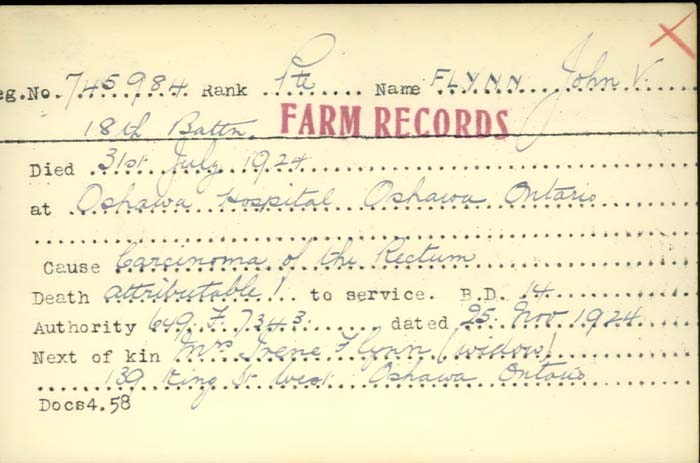 eg.No. 745984 Rank Pte Name FLYNN John V.
18th Battn. FARM RECORDS
Died 31st July 1924
at Oshawa Hospital Oshawa Ontario
Cause Carcinoma of the Rectum
Death attributable to service. B.D. 14
Authority 649. F. 7343 dated 25 Nov 1924
Next of kin Mrs Irene Flynn (widow)
139 King St West Oshawa Ontario
Docs4.58